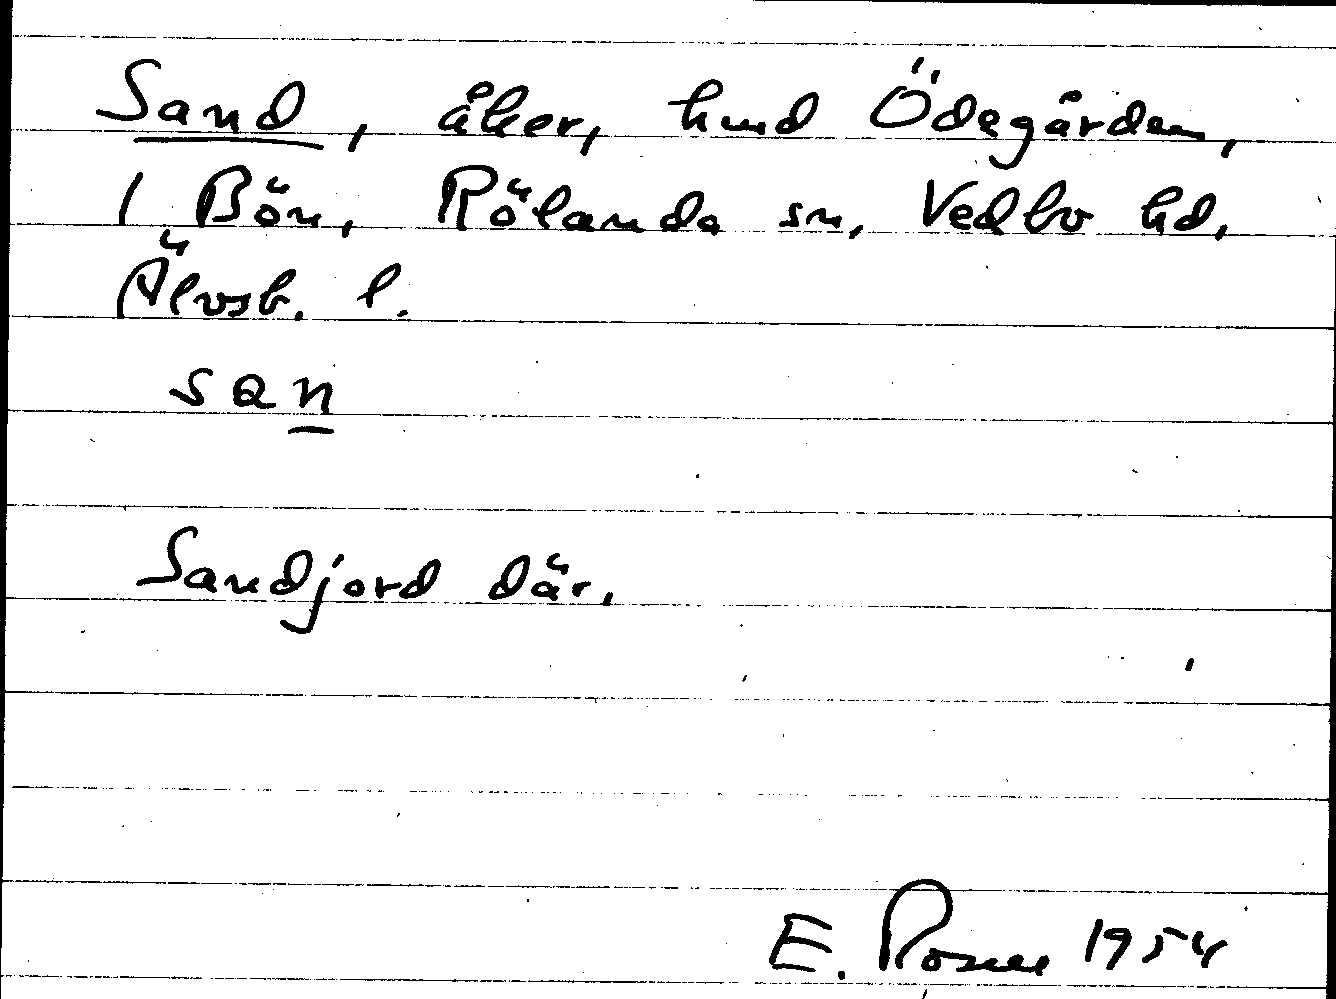 Sand, åker, hmd Ödegården,
1 Bön, Rölanda sn, Vedbo hd,
Älvsb. l.
san
Sandjord där.
E. Rosell 1954